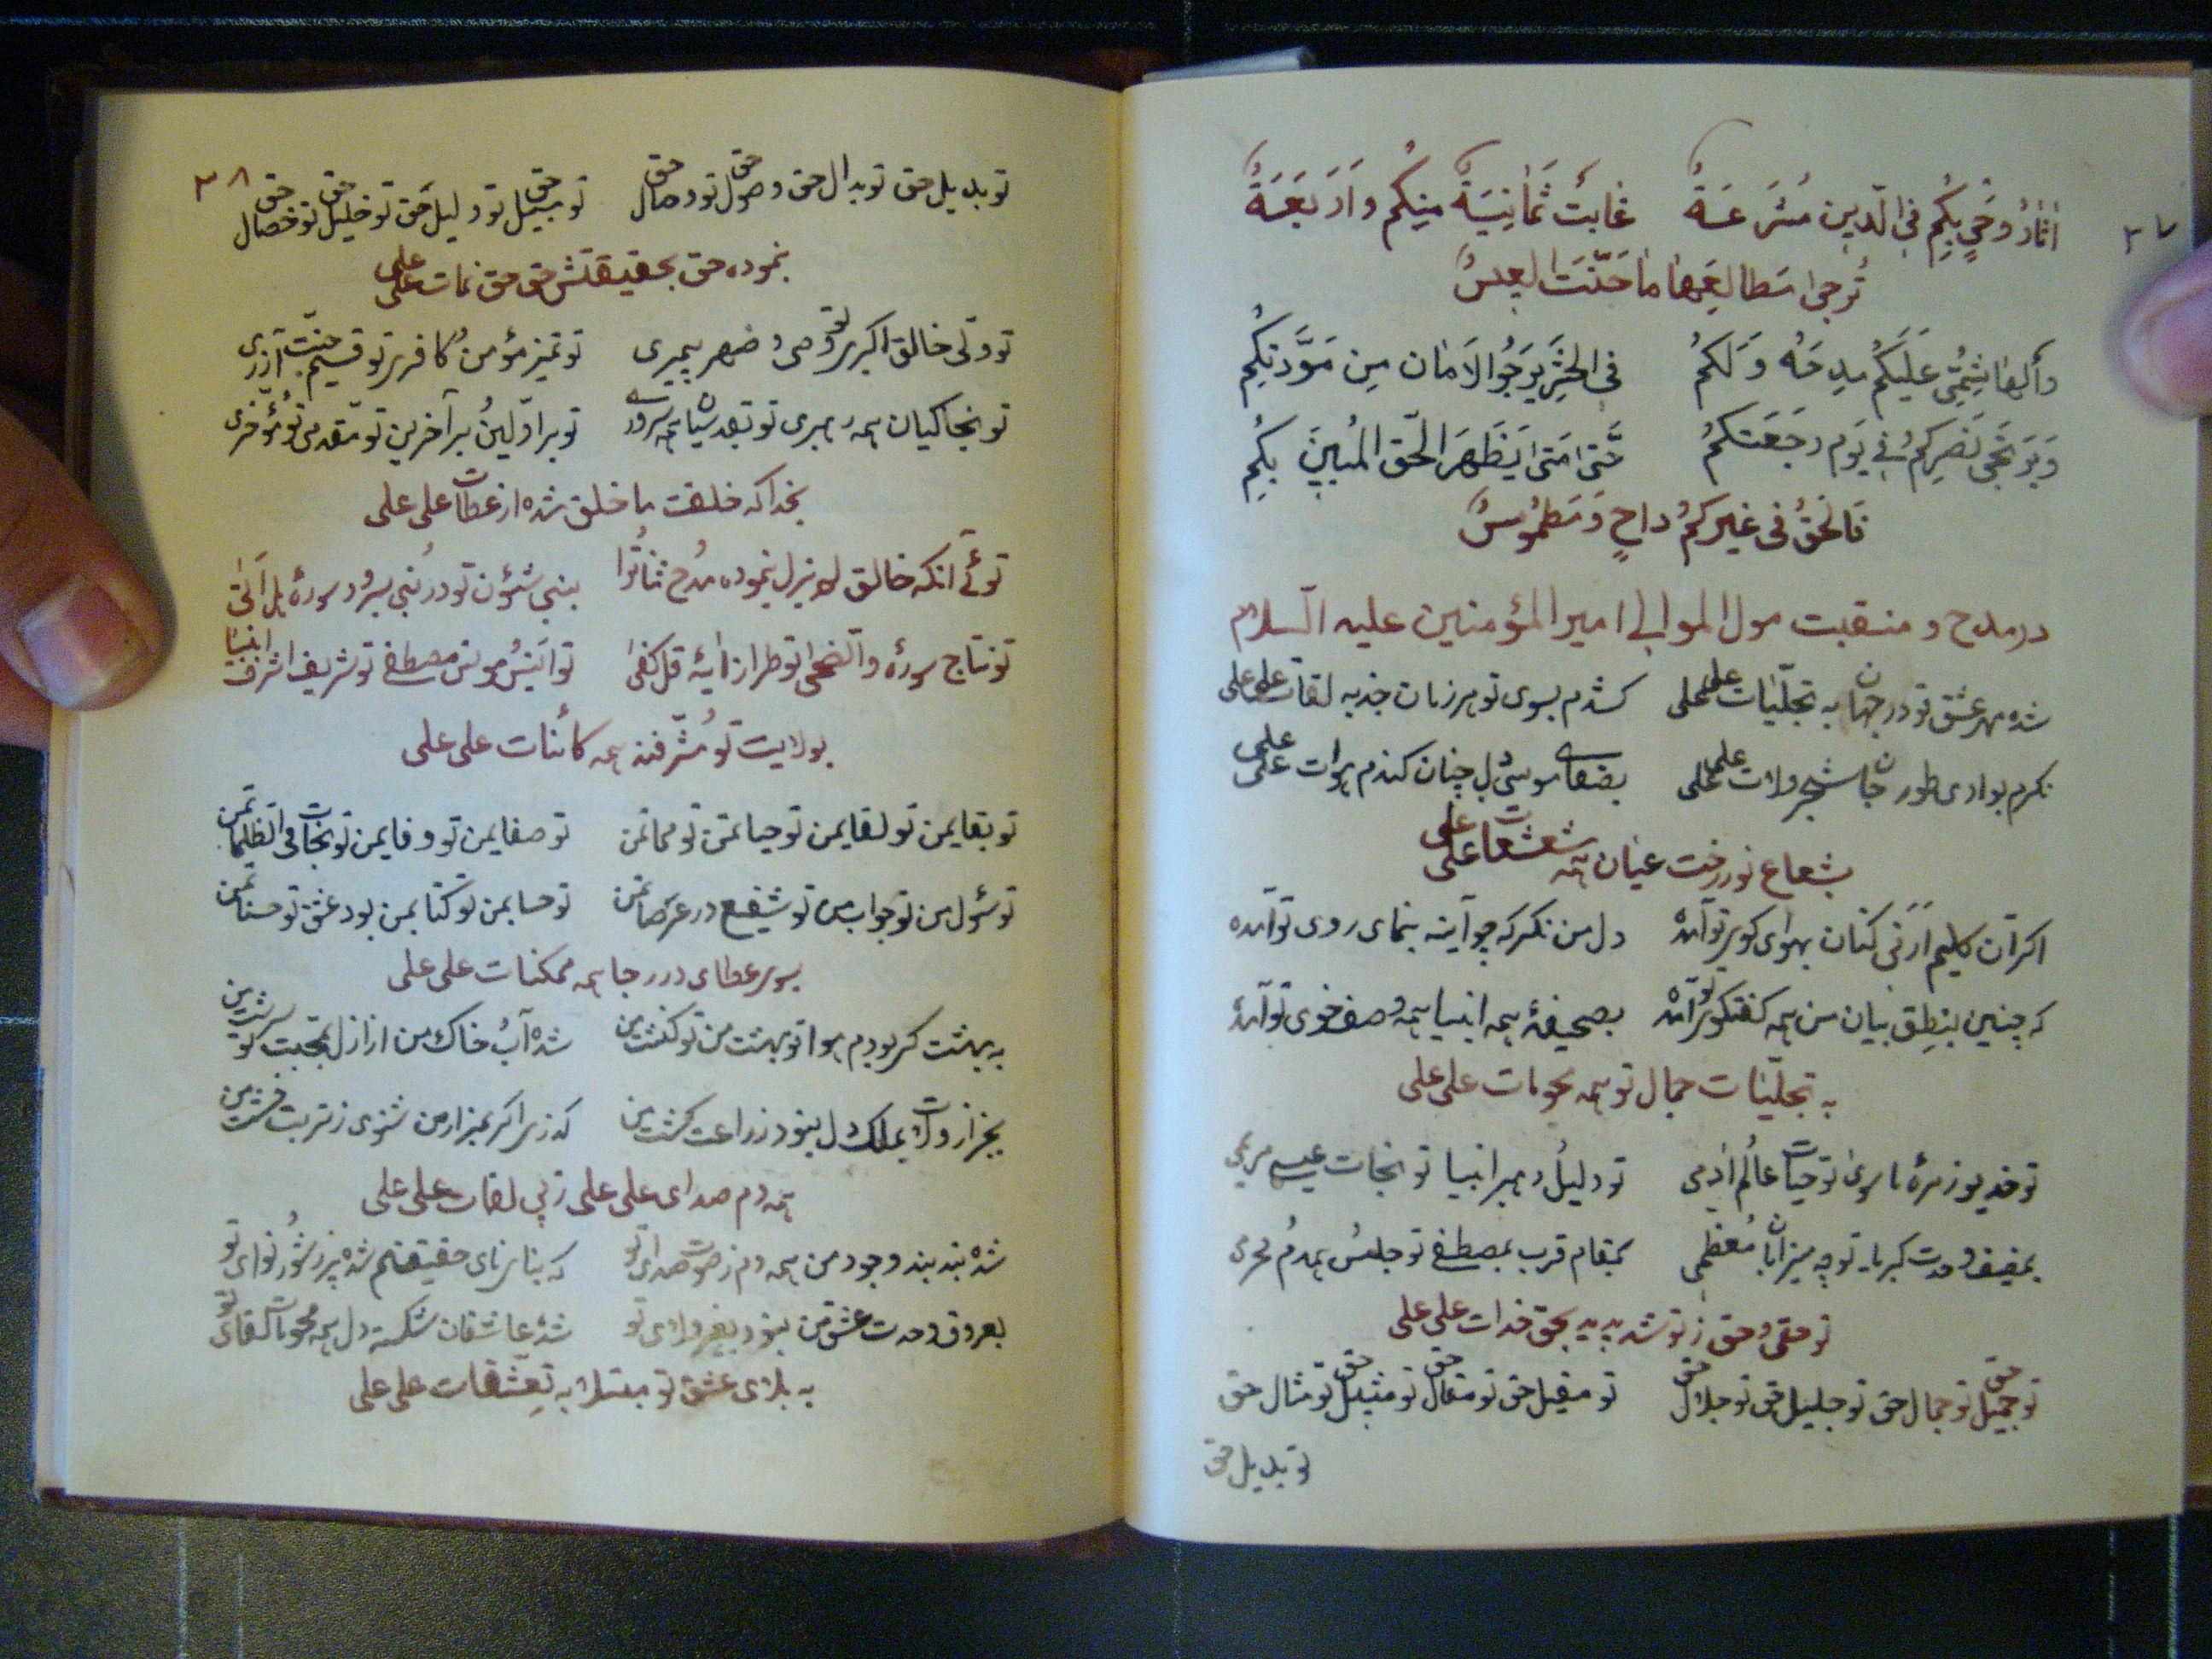 ۲۷
اثار وحی بکم فی الدین مشرعة غابت ثمانیة منکم واربعة
ترجی مطالعها ما حنت العیس
فی الحشر یرجو الامان من مودتکم
حتی متی یظهر الحق المبین بکم
فالحق فی غیرکم داح ومطموس
در مدح و منقبت مولی الموالی امیر المؤمنین علیه السلام
شده مهر عشق تو در جهان به تجلیات علی علی کشدم بسوی تو هر زمان جذبه لقات علی علی
نکرم بوادی طور جان شجر ولات علی علی بضعای موسی دل چنان کندم هوات علی علی
بشعاع نور رخت عیان همه شعشعات علی علی
اکر آن کلیم ارنی کنان بهوای کوی تو آمده دل من نکر که چو آینه بنمای روی تو آمده
که چنین بنطق بیان من همه کفتکوی تو آمده بصحیفهٔ همه انبیا همه وصف خوی تو آمدهٔ
به تجلیات جمال تو همه محو مات علی علی
تو خدیو زمرهٔ ماسوی تو حیات عالم آدمی تو دلیل رهبر انبیا تو نجات عیسی مریمی
وحدت کبریا تو چه میزبان معظمی بمقام قرب بمصطفی تو جلیس همدم محرمی
تو حقی و حق ز تو شد پدید بحق خدات علی علی
تو جمیل حق تو جمال حق تو جلیل حق تو جلال حق تو مقیل حق تو مقال حق تو مثیل حق تو مثال حق
تو بدیل حق
۲۸
تو بدیل حق تو بدال حق وصول حق تو وصال حق تو سبیل حق تو دلیل حق تو خلیل حق تو خصال حق
بنموده حق بحقیقتش حق حق نمات علی علی
تو ولی خالق اکبری تو وصی و ضهر پیمبری تو تمیز مؤمن و کافری تو قسیم جنت آذری
تو بخاکیان همه رهبری تو بقدسیان همه سروری تو بر اولین و بر آخرین تو مقدمی تو مؤخری
بخدا که خلقت ما خلق شده از عطات علی علی
توئی آنکه خالق لم یزل بنموده مدح ثنا ترا بنبی شئون تو در نبی بسرود سورهٔ هل اتی
تو نتاج سورهٔ والضحی تو طراز آیهٔ قل کفی تو انیس و مونس مصطفی تو شریف اشرف انبیا
بولایت تو مشرفند همه کائنات علی علی
تو بقای من تو لقای من تو حیات من تو ممات من تو صفای من تو وفای من تو نجات فی الظلمات من
تو سئول من تو جواب من تو شفیع در عرصات من تو حساب من تو کتاب من بود عشق تو حسنات من
بسر عطای در رجا همه ممکنات علی علی
به بهشت کر بودم هوا تو بهشت من تو کنشت من شده آب و خاک من از ازل بمحبت تو سرشت من
بجز از ولات بملک دل بنود زراعت کشت من که ز سر اکر بمزار من شنوی ز تربت خشت من
همه دم صدای علی علی ز پی لقات علی علی
شده بند بند وجود من همه دم ز صوت صدای تو که بنا بنای حقیقتم شده پر ز شور نوای تو
بعروق وحدت عشق من بنود بغیر ولای تو شده عاشقان شکسته دل همه محو مات لقای تو
به بلای عشق تو مبتلا به تعشقات علی علی